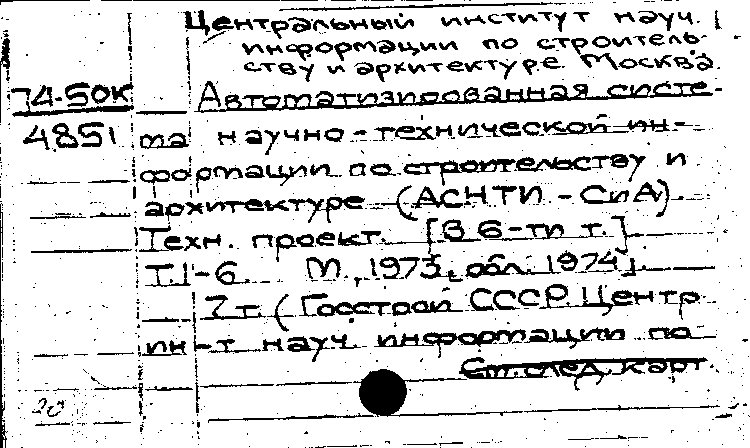 Центральный институт науч.
информации по строитель-
ству и архитектуре. Москва.
74-50К Автоматизированная систе-
4851 ма научно-технической ин-
формации по строительству и
архитектуре (АСНТИ - СиА).
Техн. проект. [В 6-ти т.].
Т.1-6. М., 1973, [обл. 1974].
7 т. (Госстрой СССР. Центр.
ин-т науч. информации по
См. след. карт.
20